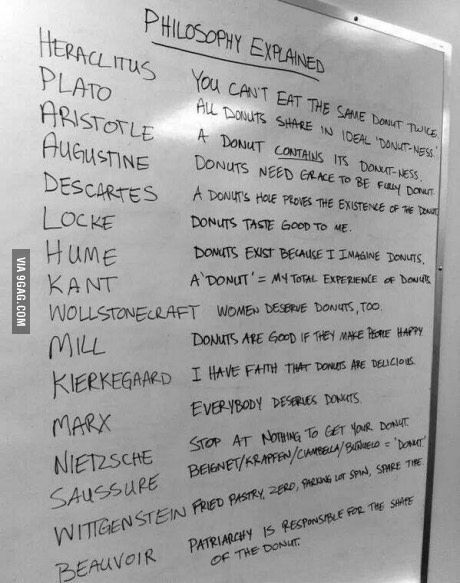 PHILOSOPHY EXPLAINED
HERACLITUS YOU CAN'T EAT THE SAME DONUT TWICE.
PLATO ALL DONUTS SHARE IN IDEAL 'DONUT-NESS.'
ARISTOTLE A DONUT CONTAINS ITS DONUT-NESS.
AUGUSTINE DONUTS NEED GRACE TO BE FULLY DONUT.
DESCARTES A DONUT'S HOLE PROVES THE EXISTENCE OF THE DONUT.
LOCKE DONUTS TASTE GOOD TO ME.
HUME DONUTS EXIST BECAUSE I IMAGINE DONUTS.
KANT A 'DONUT' = MY TOTAL EXPERIENCE OF DONUTS
WOLLSTONECRAFT WOMEN DESERVE DONUTS, TOO.
MILL DONUTS ARE GOOD IF THEY MAKE PEOPLE HAPPY
KIERKEGAARD I HAVE FAITH THAT DONUTS ARE DELICIOUS.
MARX EVERYBODY DESERVES DONUTS.
NIETZSCHE STOP AT NOTHING TO GET YOUR DONUT.
SAUSSURE BEIGNET/KRAPFEN/CIAMBELLA/BUÑUELO = 'DONUT.'
WITTGENSTEIN FRIED PASTRY, ZERO, PARKING LOT SPIN, SPARE TIRE.
BEAUVOIR PATRIARCHY IS RESPONSIBLE FOR THE SHAPE
OF THE DONUT.
VIA 9GAG.COM